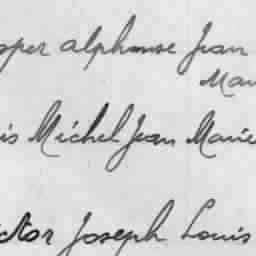 sper alphonse Jean
Mar
is Michel Jean Marie
ctor Joseph Louis